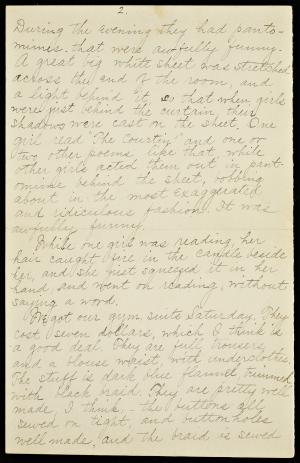 2.
During the evening they had panto-
mimes that were awfully funny.
A great big white sheet was stretched
across the end of the room, and
a light behind it, so that when girls
were just behind the curtain, their
shadows were cast on the sheet. One
girl read "The Courtin'" and one or
two other poems like that while
other girls acted them out in pant-
omime behind the sheet, bobbing
about in the most exaggerated
and ridiculous fashion. It was
awfully funny.
While one girl was reading, her
hair caught fire in the candle beside
her, and she just squeezed it in her
hand and went on reading, without
saying a word.
We got our gym. suits Saturday. They
cost seven dollars, which I think is
a good deal. They are full trousers
and a blouse waist, with underclothes.
The stuff is dark blue flannel trimmed
with black braid. They are pretty well
made, I think, - the buttons all
sewed on tight, and buttonholes
well made, and the braid is sewed